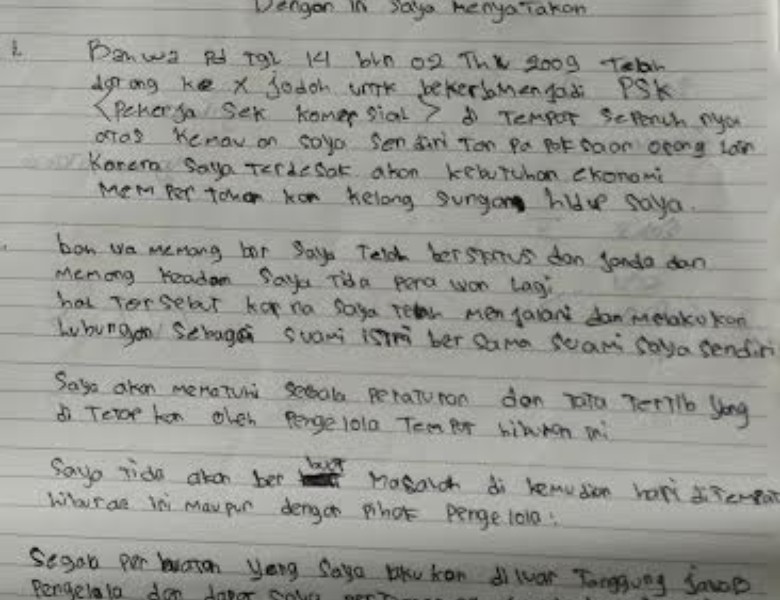 Dengan ini saya menyatakan
1. Bahwa Pd Tgl 14 bln 02 Thn 2009 Telah
datang ke X jodoh untk bekerja menjadi PSK
<Pekerja Sek komersial> di TEMPAT sepenuh nya
atas kemau an saya sendiri Tan pa paksaan orang lain
Karena saya Terdesak akan kebutuhan ekonomi
Mem per tahan kan kelang sungan hidup saya.
bah wa memang bnr saya Telah berstatus dan janda dan
memang keadan saya Tida pera wan lagi
hal Tersebut kar na saya telah menjalani dan melakukan
hubungan sebagai suami istri ber sama suami saya sendiri
Saya akan mematuhi segala peraturan dan Tata Tertib yang
di Tetap kan oleh pengelola Tempat hiburan ini
Saya Tida akan ber buat Masalah di kemudian hari di Tempat
hiburan ini maupun dengan pihak pengelola.
Segala per buatan yang saya lakukan di luar Tanggung jawab
Pengelola dan dapat saya